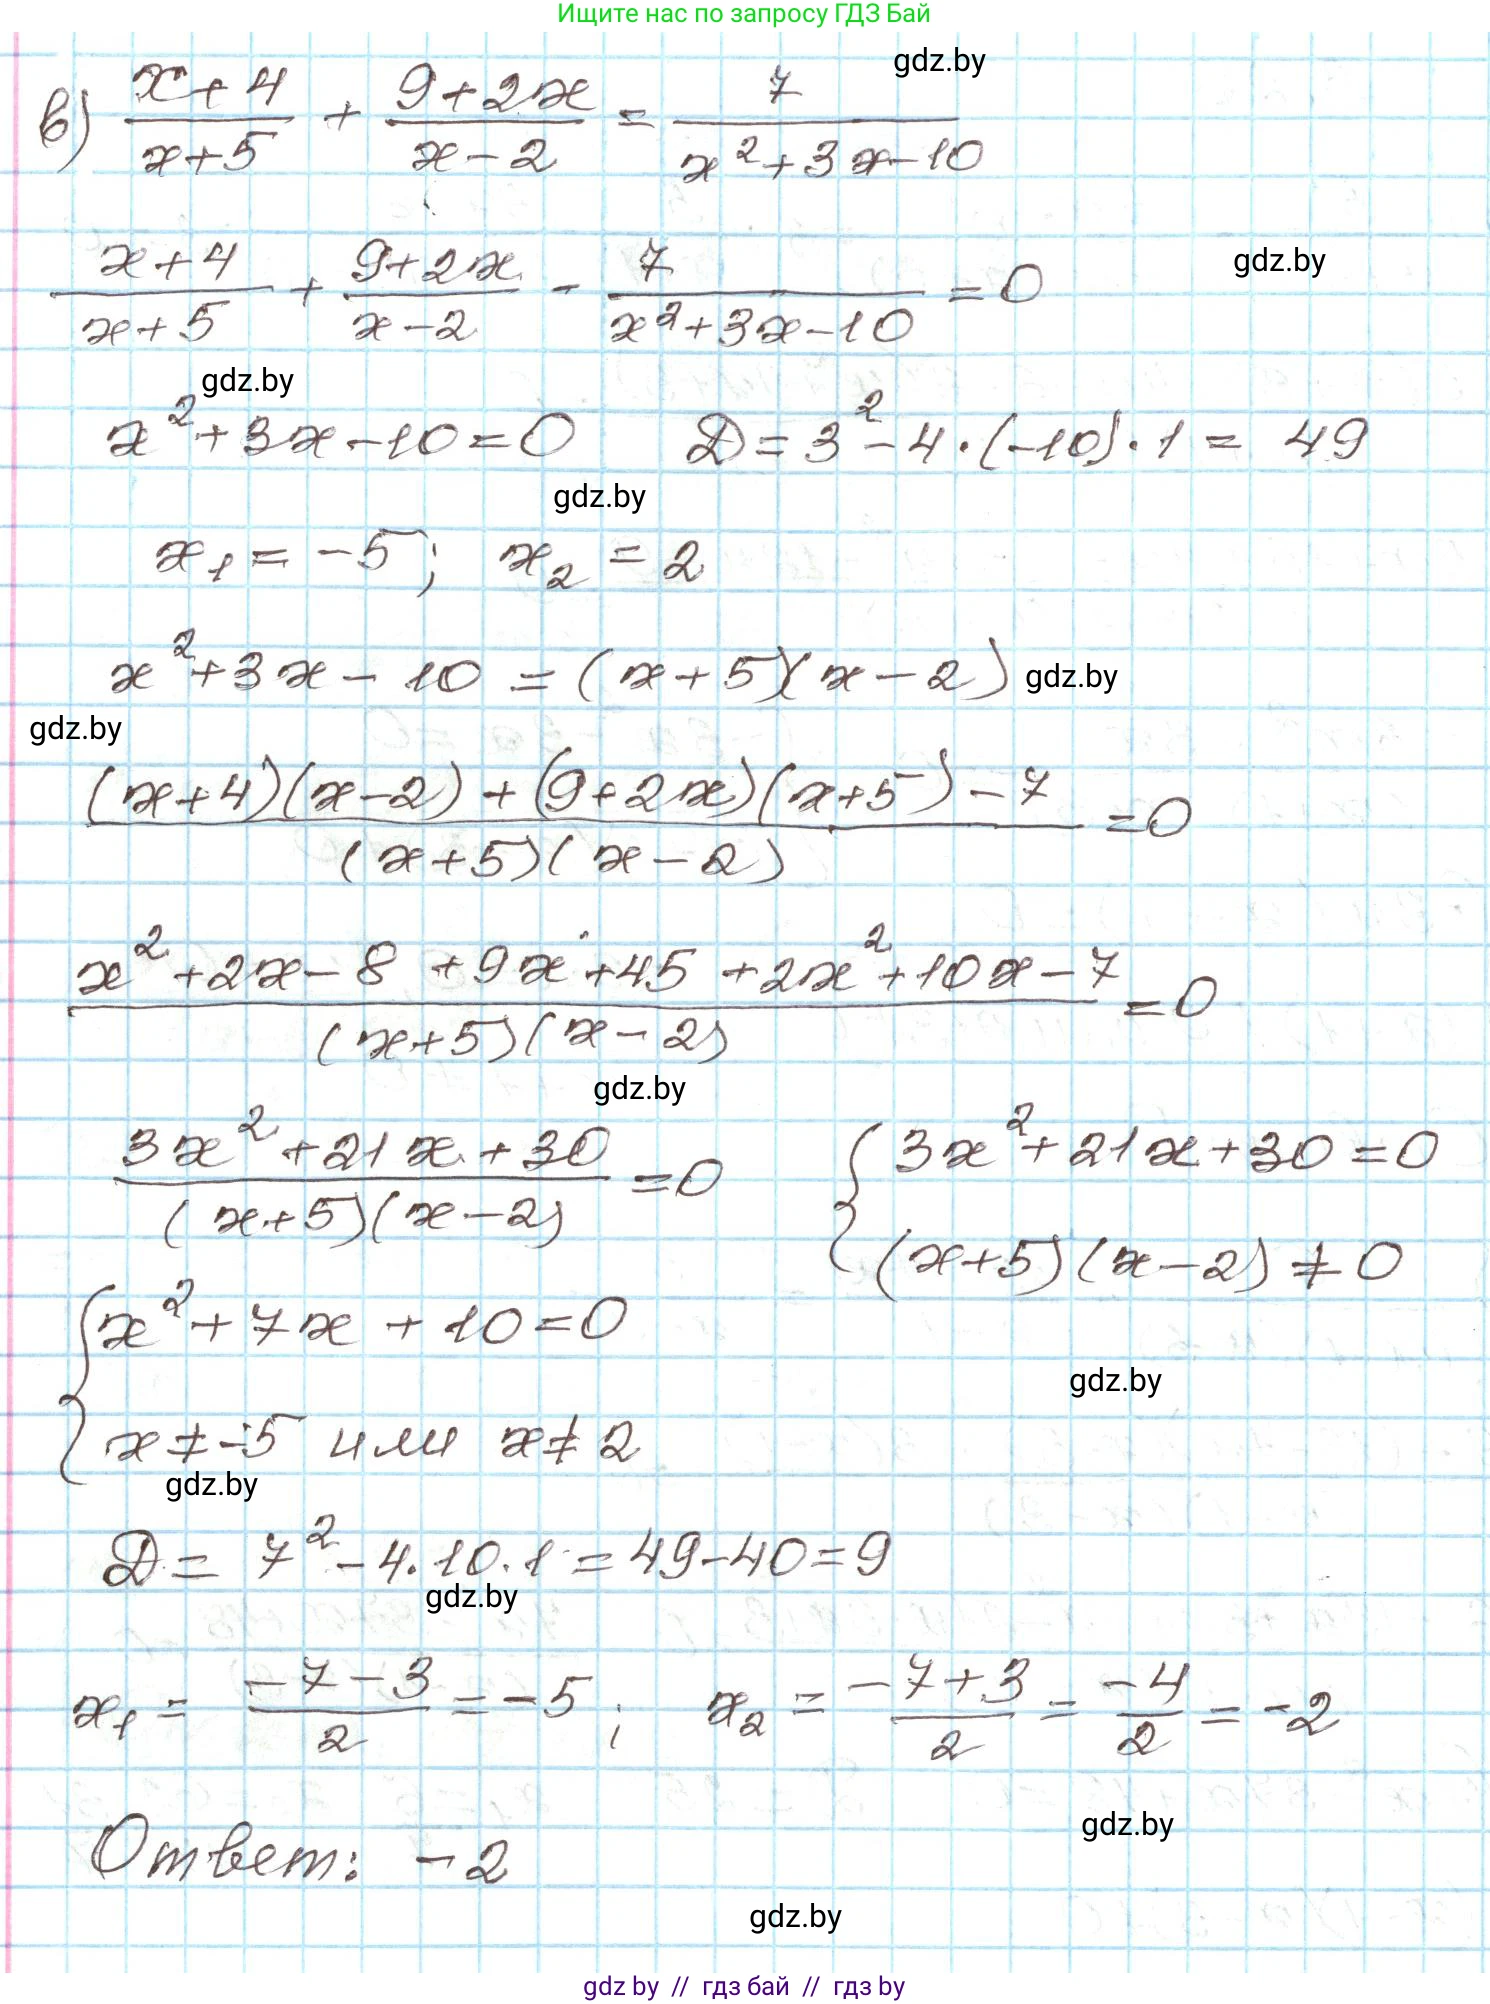 Ищите нас по запросу ГДЗ Бай
gdz.by
в) (x+4)/(x+5) + (9+2x)/(x-2) = 7/(x²+3x-10)
(x+4)/(x+5) + (9+2x)/(x-2) - 7/(x²+3x-10) = 0
gdz.by
gdz.by
x²+3x-10=0 Д=3²-4·(-10)·1= 49
gdz.by
x₁=-5; x₂=2
x²+3x-10=(x+5)(x-2) gdz.by
gdz.by
((x+4)(x-2)+(9+2x)(x+5)-7)/((x+5)(x-2)) =0
(x²+2x-8+9x+45+2x²+10x-7)/((x+5)(x-2)) =0
gdz.by
(3x²+21x+30)/((x+5)(x-2)) =0 { 3x²+21x+30=0
(x+5)(x-2)≠0
{ x²+7x+10=0
gdz.by
x≠-5 или x≠2
gdz.by
Д= 7²-4·10·1=49-40=9
gdz.by
x₁= (-7-3)/2 =-5; x₂= (-7+3)/2 = -4/2 = -2
gdz.by
Ответ: -2
gdz.by
gdz by // гдз бай // гдз by